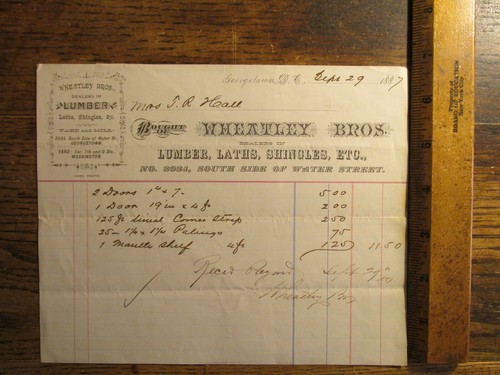 Georgetown, D.C. Sept 29 1887
WHEATLEY BROS.
DEALERS IN
LUMBER
Laths, Shingles, &c.
YARD AND MILL
South Side of Water St
GEORGETOWN
7th and
WASHINGTON
Mrs T. R. Hall
Bought WHEATLEY BROS.
DEALERS IN
LUMBER, LATHS, SHINGLES, ETC.,
SOUTH SIDE OF WATER STREET.
2 Doors 5 00
1 Door 19 in x 4 ft 2 00
125 ft lineal Corner Strip 2 50
25 Palings 75
1 Mantle Shelf 4 ft 1 25 11 50
Rec'd Payment Sept 29
Wheatley Bros
Property of
BOARD OF EDUCATION